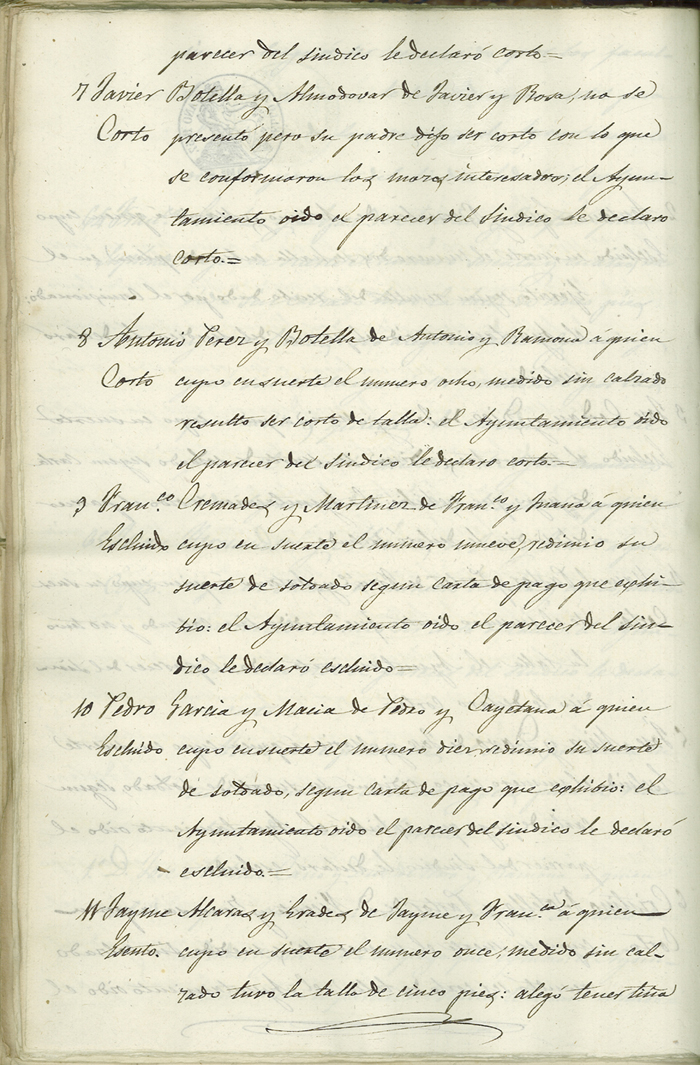 parecer del sindico le declaró corto=
7 Javier Botella y Almodovar de Javier y Rosa, no se
Corto presentó pero su padre dijo ser corto con lo que
se conformaron los mozos interesados; el Ayun-
tamiento oido el parecer del Sindico le declaro
corto.=
8 Antonio Perez y Botella de Antonio y Ramona á quien
Corto cupo en suerte el numero ocho, medido sin calzado
resulto ser corto de talla: el Ayuntamiento oido
el parecer del Sindico le declaro corto.=
9 Fran.co Cremades y Martinez de Fran.co y Juana á quien
Escluido cupo en suerte el numero nueve, redimio su
suerte de soldado segun carta de pago que exhi-
bio: el Ayuntamiento oido el parecer del Sin-
dico le declaró escluido=
10 Pedro Garcia y Macia de Pedro y Cayetana á quien
Escluido cupo en suerte el numero diez, redimio su suerte
de soldado, segun carta de pago que exhibio: el
Ayuntamiento oido el parecer del sindico le declaró
escluido.=
11 Jayme Alcaraz y Grades de Jayme y Fran.ca á quien
Esento. cupo en suerte el numero once, medido sin cal-
zado tuvo la talla de cinco pies: alegó tener tiña